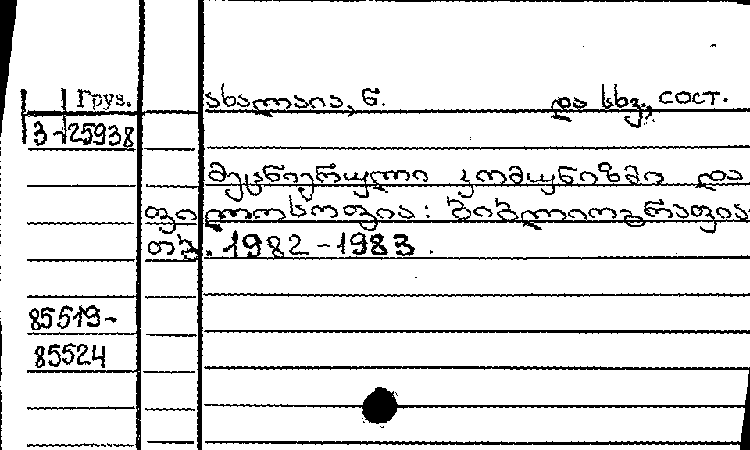 Груз.
ახალაია, ნ. და სხვ., сост.
3-25938
მეცნიერული კომუნიზმი და
ფილოსოფია: ბიბლიოგრაფია
თბ. 1982-1983.
85519-
85524